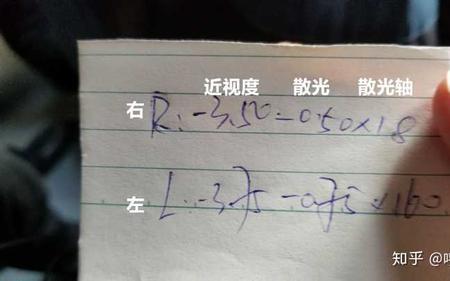 近视度 散光 散光轴
右 R: -3.50 -0.50×18
左 L: -3.75 -0.75×160
知乎